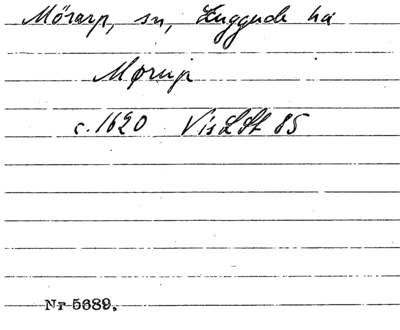 Mörarp, sn, Luggude hd
Mørup
c. 1620 VisLSt 85
Nr 5689.